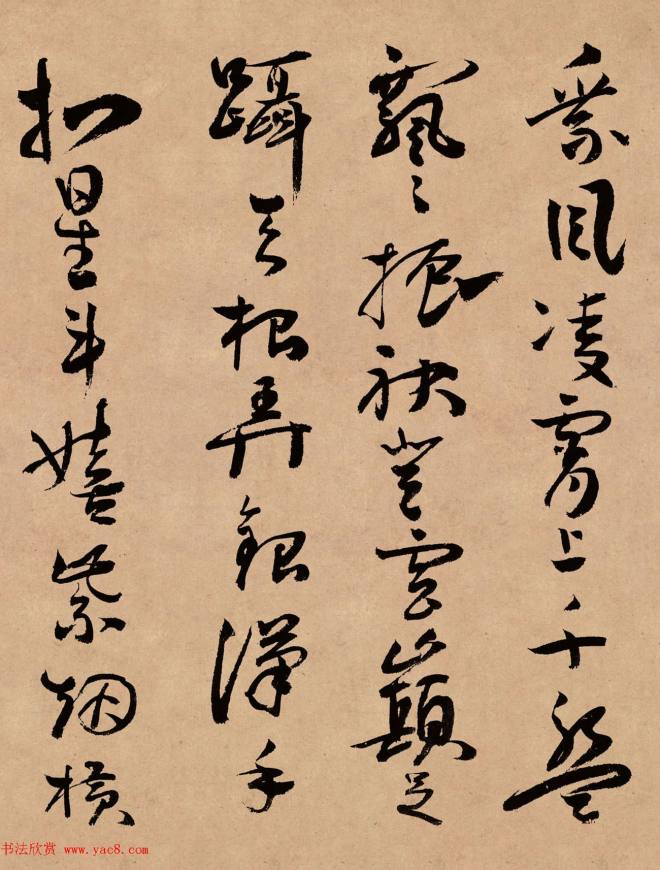 乘风凌霄上千盤
飄々振袂登雲巔足
躡天根弄銀漢手
扪星斗嬉紫烟横
书法欣赏 www.yac8.com